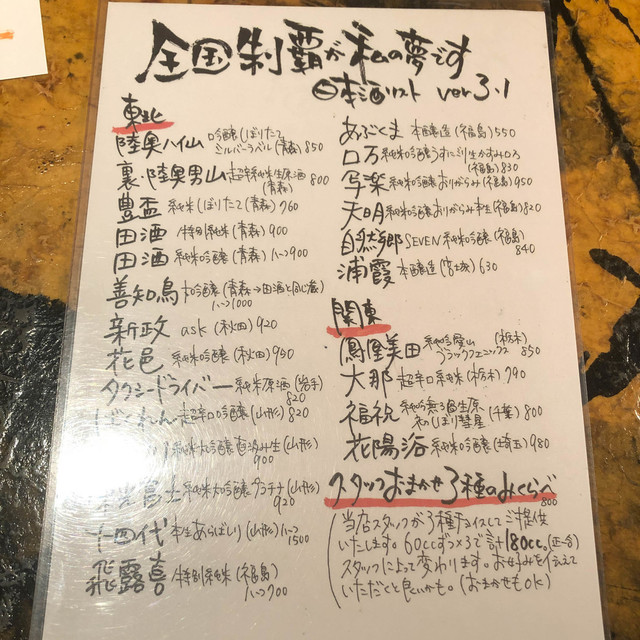 全国制覇が私の夢です
日本酒リスト ver 3.1
東北
陸奥八仙 吟醸しぼりたて シルバーラベル (青森) 850
裏・陸奥男山 超辛純米生原酒 (青森) 800
豊盃 純米しぼりたて (青森) 760
田酒 特別純米 (青森) 900
田酒 純米吟醸 (青森) ハーフ900
善知鳥 大吟醸 (青森→田酒と同じ蔵) ハーフ1000
新政 ask (秋田) 920
花邑 純米吟醸 (秋田) 950
タクシードライバー 純米原酒 (岩手) 820
ばくれん 超辛口吟醸 (山形) 820
純米大吟醸 直汲み生 (山形) 900
富士 純米大吟醸 プラチナ (山形) 920
十四代 本生あらばしり (山形) ハーフ1500
飛露喜 特別純米 (福島) ハーフ700
あぶくま 本醸造 (福島) 550
ロ万 純米吟醸うすにごり生かすみロ万 (福島) 830
写楽 純米吟醸おりがらみ (福島) 950
天明 純米吟醸おりがらみ本生 (福島) 820
自然郷 SEVEN 純米吟醸 (福島) 840
浦霞 本醸造 (宮城) 630
関東
鳳凰美田 純米吟醸 ブラックフェニックス (栃木) 850
大那 超辛口純米 (栃木) 790
福祝 純吟無ろ過生原 初しぼり彗星 (千葉) 800
花陽浴 純米吟醸 (埼玉) 980
スタッフおまかせ3種のみくらべ 800
当店スタッフが3種チョイスしてご提供
いたします。60ccずつ×3で計180cc。(正一合)
スタッフによって変わります。お好みを伝えて
いただくと良いかも。(おまかせもOK)